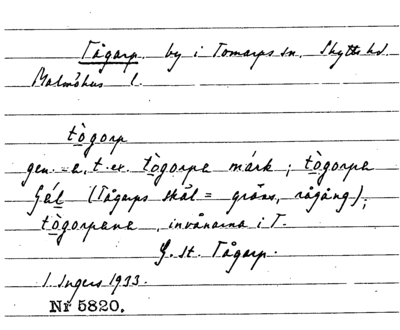 Tågarp. by i Tomarps sn. Skytts hd.
Malmöhus l.
tògorp
gen. -a, t. ex. tògorpa márk; tògorpa
(Tågarps skäl = gräns, rågång);
tògorpana, invånarna i T.
G. st. Tågarp.
I. Ingers 1933.
Nr 5820.